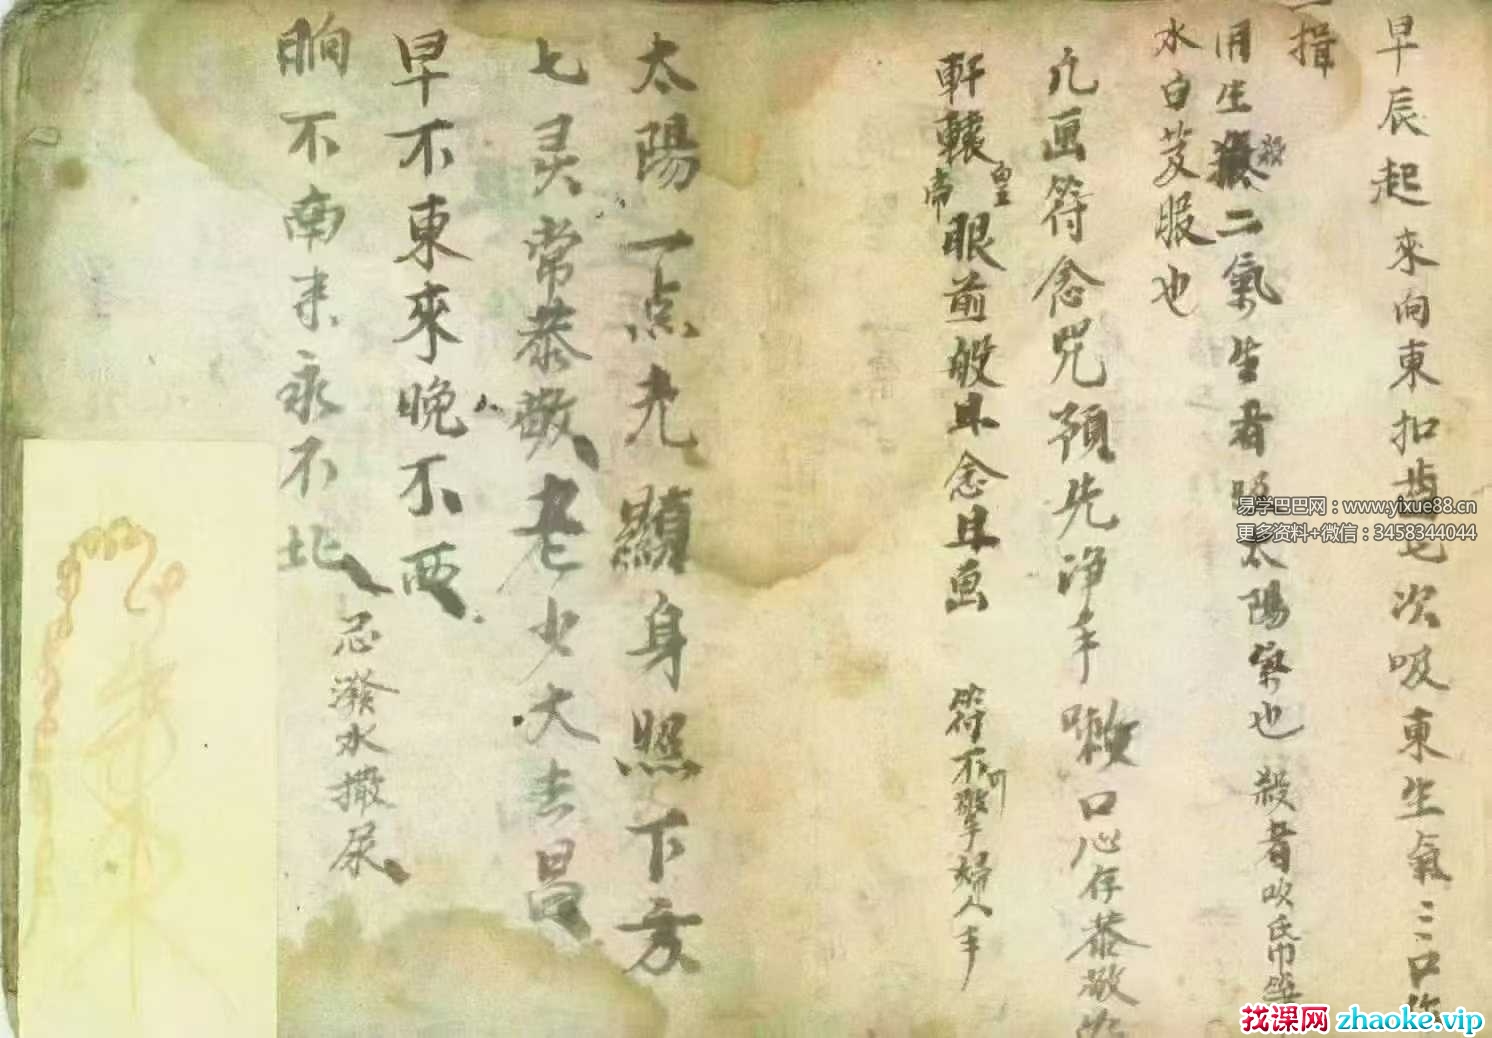 早辰起來向東扣齒七次吸東生氣三口
一揖
用生殺二氣生者照太陽氣也殺者吹
殺
水白芨服也
凡画符念咒預先净手嗽口心存恭敬
軒轅皇帝眼前般且念且画 符不可擎婦人手
太陽一点光顯身照下方
七灵常恭敬老少大吉昌
早不東來晚不西
晌不南來永不北
忌潑水撒尿
易学巴巴网：www.yixue88.cn
更多资料+微信：3458344044
找课网 zhaoke.vip